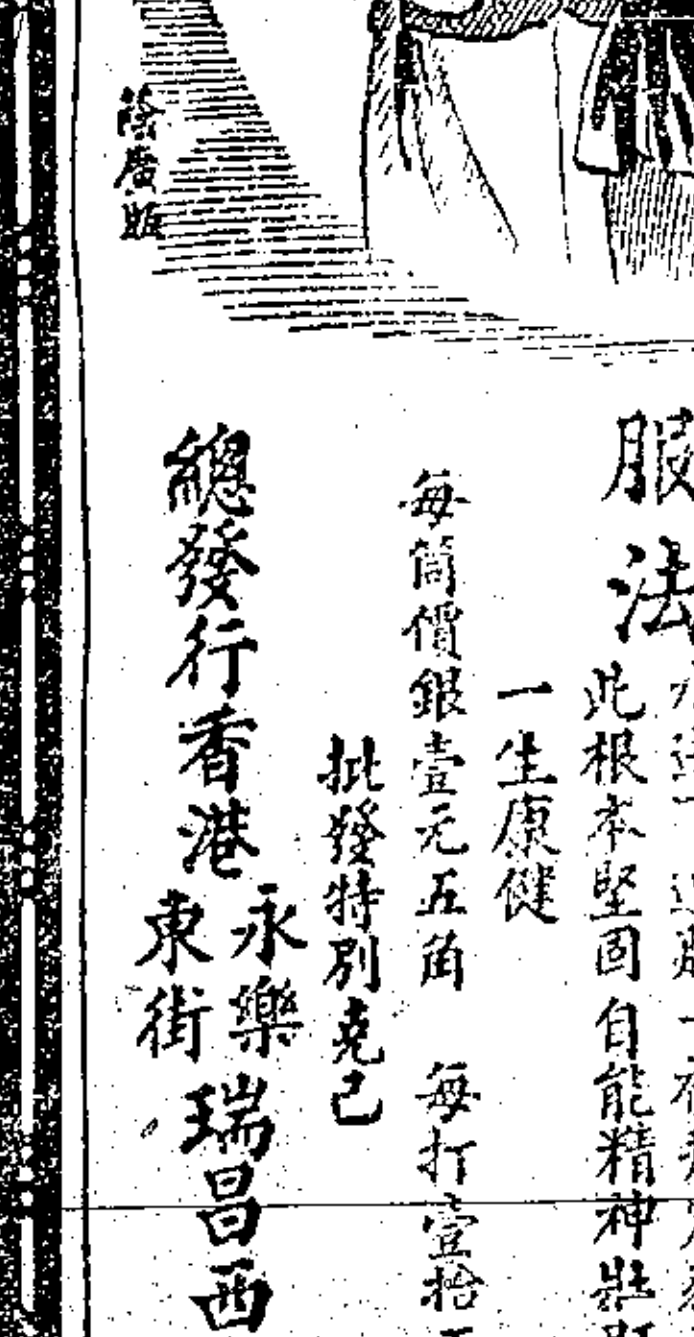 服法
此根本堅固自能精神壯
一生康健
每筒價銀壹元五角 每打壹拾
批發特別克己
總發行香港永樂東街瑞昌西